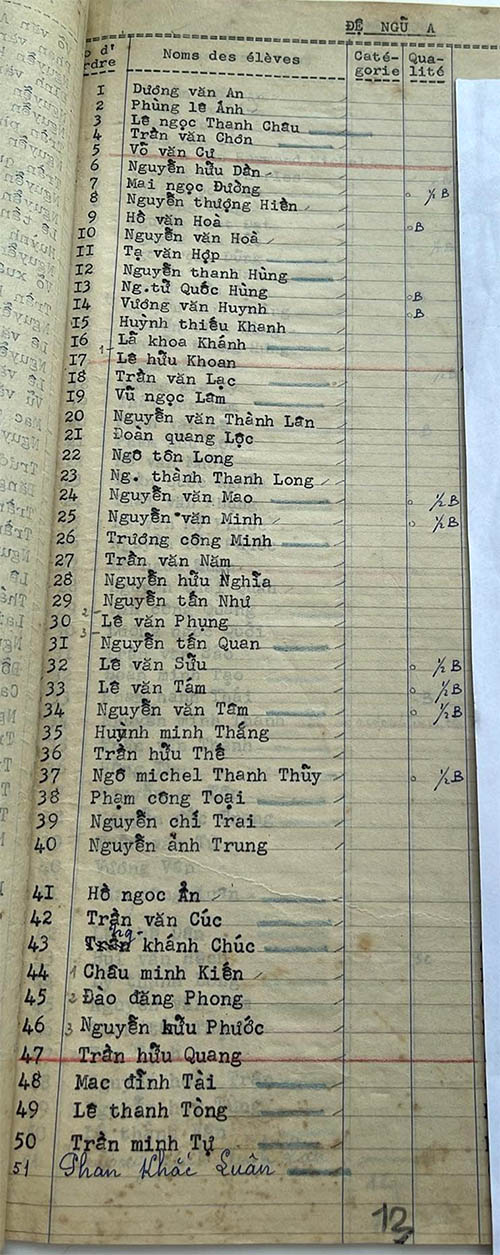 ĐỆ NGŨ A
o d' Noms des élèves Caté- Qua-
rdre gorie lité
1 Dương văn An
2 Phùng lê Ánh
3 Lê ngọc Thanh Châu
4 Trần văn Chơn
5 Võ văn Cư
6 Nguyễn hữu Dàn
7 Mai ngọc Đường ½ B
8 Nguyễn thượng Hiền
9 Hồ văn Hoà B
10 Nguyễn văn Hoà
11 Tạ văn Hợp
12 Nguyễn thanh Hùng
13 Ng.tử Quốc Hùng B
14 Vương văn Huynh B
15 Huỳnh thiếu Khanh
16 Lã khoa Khánh
17 Lê hữu Khoan
18 Trần văn Lạc
19 Vũ ngọc Lâm
20 Nguyễn văn Thành Lân
21 Đoàn quang Lộc
22 Ngô tôn Long
23 Ng. thành Thanh Long
24 Nguyễn văn Mao ½ B
25 Nguyễn văn Minh ½ B
26 Trương công Minh
27 Trần văn Năm
28 Nguyễn hữu Nghĩa
29 Nguyễn tấn Như
30 Lê văn Phụng
31 Nguyễn tấn Quan
32 Lê văn Sửu ½ B
33 Lê văn Tám ½ B
34 Nguyễn văn Tâm ½ B
35 Huỳnh minh Thắng
36 Trần hữu Thế
37 Ngô michel Thanh Thủy ½ B
38 Phạm công Toại
39 Nguyễn chí Trai
40 Nguyễn ảnh Trung
41 Hồ ngọc Ẩn
42 Trần văn Cúc
43 ng. khánh Chúc
44 1 Châu minh Kiến
45 2 Đào đăng Phong
46 3 Nguyễn hữu Phước
47 Trần hữu Quang
48 Mac đình Tài
49 Lê thanh Tòng
50 Trần minh Tự
51 Phan Khắc Luân